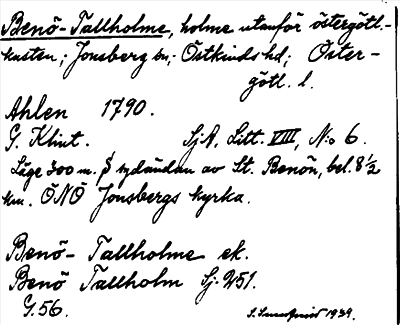 Benö-Tallholme, holme utanför östergötl.-
kusten; Jonsberg sn; Östkinds hd; Öster-
götl. l.
Ahlen 1790.
G. Klint. SjA, Litt. VIII, No 6.
Läge 300 m. S sydändan av St. Benön, bel. 8 1/2
km. ÖNÖ Jonsbergs kyrka.
Benö- Tallholme ek.
Benö Tallholm Sj. 251.
G. 56.
1939.